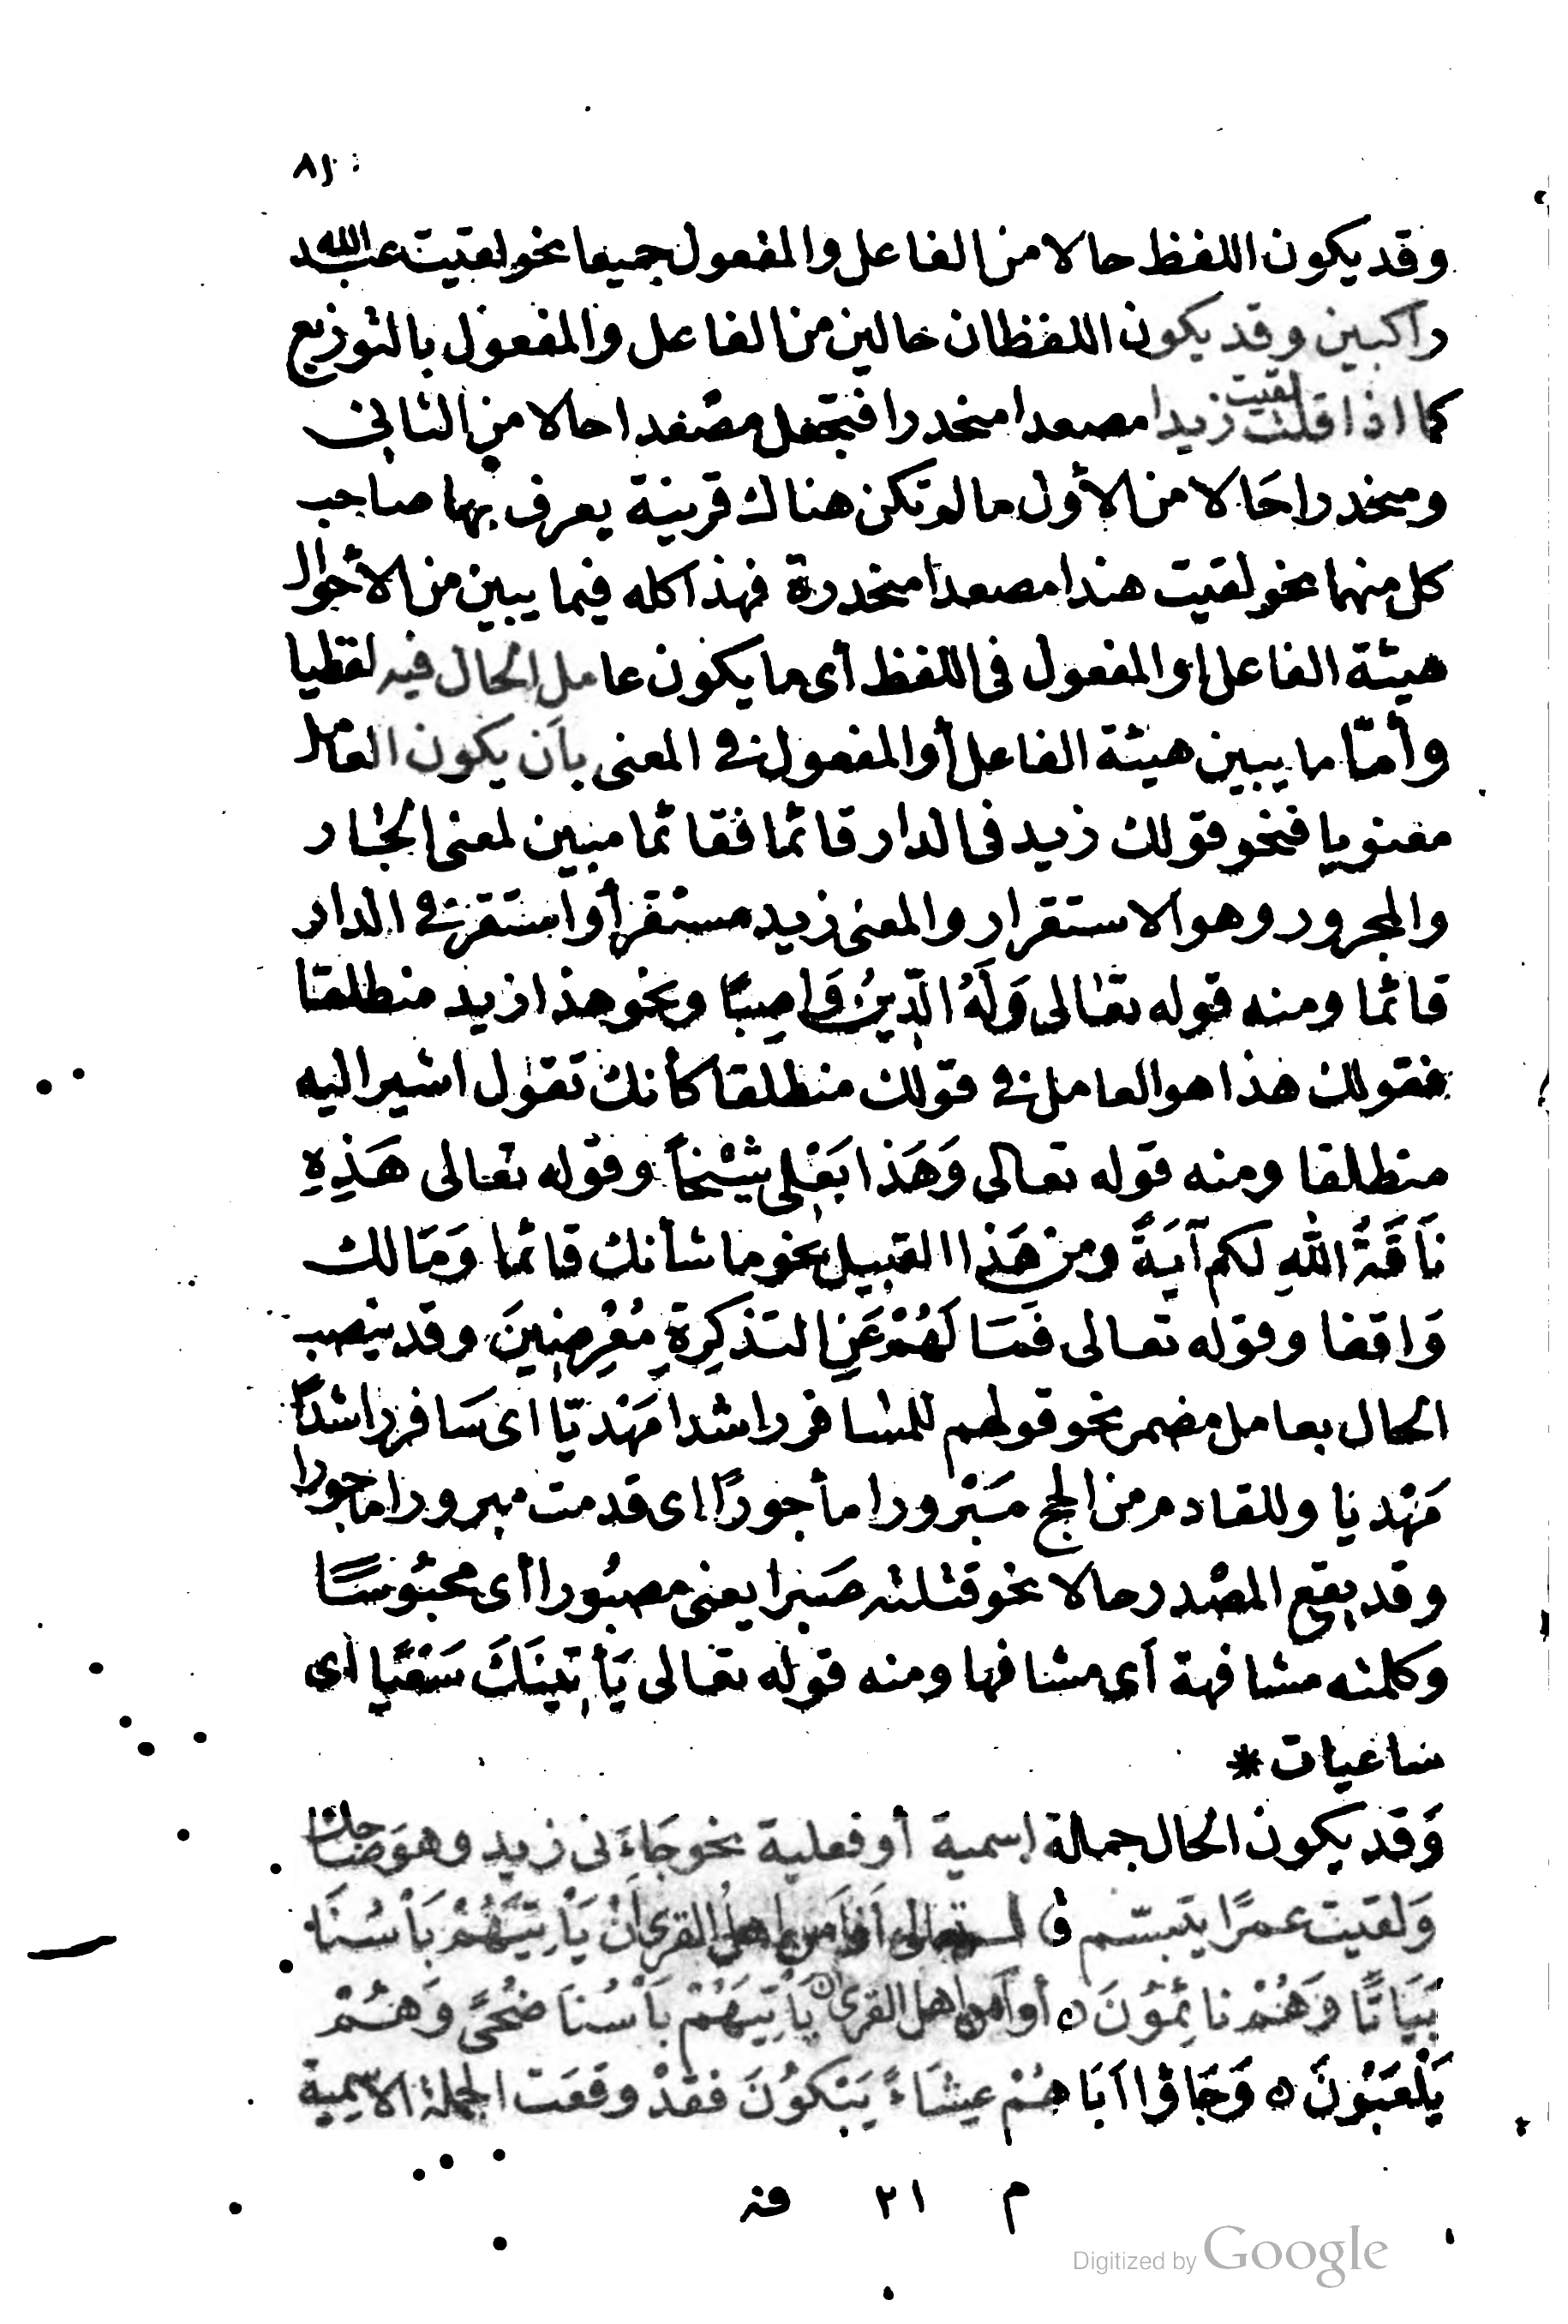 ٨١
وقد يكون اللفظ حالا من الفاعل والمفعول جميعا نحو لقيت عبد الله
راكبين وقد يكون اللفظان حالين من الفاعل والمفعول بالتوزيع
كما اذا قلت لقيت زيدا مصعدا منحدرا فتجعل مصعدا حالا من الثاني
ومنحدرا حَالا من الأول ما لم تكن هناك قرينة يعرف بها صاحب
كل منهما نحو لقيت هندا مصعدا منحدرة فهذا كله فيما يبين من الأحوال
هيئة الفاعل او المفعول فى اللفظ أى ما يكون عامل الحال فيه لفظيا
وأمّا ما يبين هيئة الفاعل أو المفعول في المعنى بأن يكون العامل
معنويا فنحو قولك زيد فى الدار قائما فقائما مبين لمعنى الجار
والمجرور وهو الاستقرار والمعنى زيد مستقر أو استقر في الدار
قائما ومنه قوله تعالى وَلَهُ الدِّينُ وَاصِبًا ونحو هذا زيد منطلقا
فقولك هذا هو العامل في قولك منطلقا كأنك تقول اشير اليه
منطلقا ومنه قوله تعالى وَهَذا بَعْلِى شَيْخاً وقوله تعالى هَذِهِ
نَاقَةُ اللهِ لكم آيَةً ومن هَذا القبيل نحو ما شأنك قائما وَمَا لك
وَاقفا وقوله تعالى فَمَا لَهُمْ عَنِ التذكِرَةِ مُعْرِضِينَ وقد ينصب
الحال بعامل مضمر نحو قولهم للمسافر راشدا مَهْديّا اى سَافر راشدًا
مَهْديا وللقادم من الحج مَبْرورا مأجورًا اى قدمت مبرورا ماجورا
وقد يقع المصْدر حالا نحو قتلته صَبرا يعنى مصبُورا أى محبُوسًا
وكلمته مشافهة أى مشافها ومنه قوله تعالى يَأتِينَكَ سَعْيًا اى
ساعيات *
وَقد يكون الحال جملة اسمية أو فعلية نحو جَاءَنى زيد وهو ضَاحك
وَلقيت عمرًا يتبسّم تعالى أفأمن اهل القرى أنْ يَأتِيَهُمْ بَأْسُنَا
بَيَاتًا وَهُمْ نائِمُونَ ٥ أو أمن اهل القرى ان يَأتِيَهُمْ بَأْسُنَا ضُحًى وَهُمْ
يَلْعَبُونَ ٥ وَجَاؤا أبَاهُمْ عِشَاءً يَبْكُونَ فقدْ وقعَت الجملة الاسمِية
م ٢١ فنه
Digitized by Google